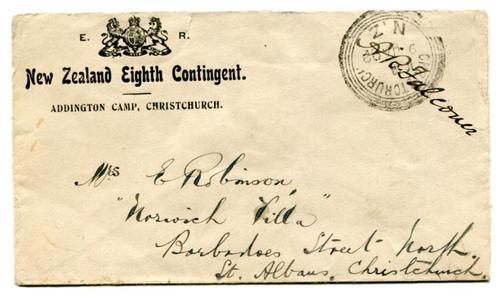 E. R.
New Zealand Eighth Contingent.
ADDINGTON CAMP, CHRISTCHURCH.
CHRISTCHURCH
N.Z
Falconer
Mrs E Robinson
"Norwich Villa"
Barbadoes Street North.
St. Albans, Christchurch.